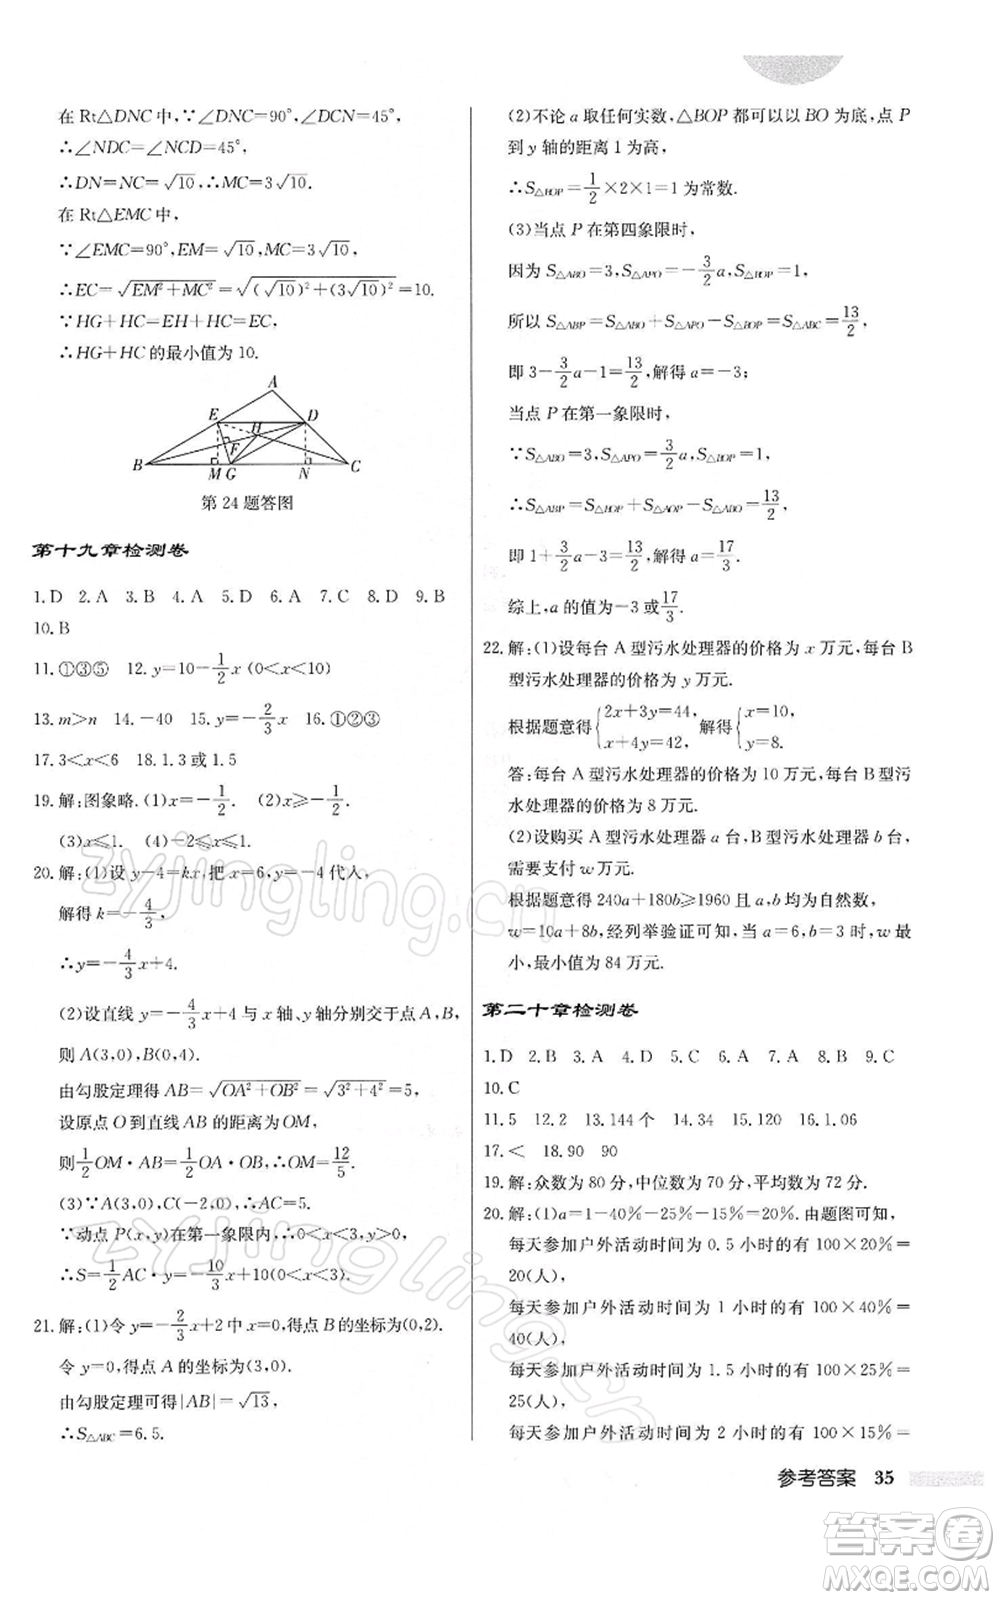 在 Rt△DNC 中,∵∠DNC=90°,∠DCN=45°,
∴∠NDC=∠NCD=45°,
∴DN=NC=√10,∴MC=3√10.
在 Rt△EMC 中,
∵∠EMC=90°,EM=√10,MC=3√10,
∴EC=√(EM²+MC²)=√((√10)²+(3√10)²)=10.
∵HG+HC=EH+HC=EC,
∴HG+HC 的最小值为 10.
A
E D
H
F
B M G N C
第 24 题答图
第十九章检测卷
1.D 2.A 3.B 4.A 5.D 6.A 7.C 8.D 9.B
10.B
11.①③⑤ 12.y=10-1/2x(0<x<10)
13.m>n 14.-40 15.y=-2/3x 16.①②③
17.3<x<6 18.1.3 或 1.5
19.解:图象略.(1)x=-1/2. (2)x≥-1/2.
(3)x≤1. (4)-2≤x≤1.
20.解:(1)设 y-4=kx,把 x=6,y=-4 代人,
解得 k=-4/3,
∴y=-4/3x+4.
(2)设直线 y=-4/3x+4 与 x 轴、y轴分别交于点 A,B,
则 A(3,0),B(0,4).
由勾股定理得 AB=√(OA²+OB²)=√(3²+4²)=5,
设原点 O 到直线 AB 的距离为 OM,
则1/2OM·AB=1/2OA·OB,∴OM=12/5.
(3)∵A(3,0),C(-2,0),∴AC=5.
∵动点 P(x,y)在第一象限内,∴0<x<3,
∴S=1/2AC·y=-10/3x+10(0<x<3).
21.解:(1)令 y=-2/3x+2 中 x=0,得点 B 的坐标为(0,2).
令 y=0,得点 A 的坐标为(3,0).
由勾股定理可得|AB|=√13,
∴S△ABC=6.5.
(2)不论 a 取任何实数,△BOP 都可以以 BO 为底,点 P
到 y 轴的距离 1 为高,
∴S△BOP=1/2×2×1=1 为常数.
(3)当点 P 在第四象限时,
因为 S△ABO=3,S△APO=-3/2a,S△BOP=1,
所以 S△ABP=S△ABO+S△APO-S△BOP=S△ABC=13/2,
即 3-3/2a-1=13/2,解得 a=-3;
当点 P 在第一象限时,
∵S△ABO=3,S△APO=3/2a,S△BOP=1,
∴S△ABP=S△BOP+S△AOP-S△ABO=13/2,
即 1+3/2a-3=13/2,解得 a=17/3.
综上,a 的值为-3 或17/3.
22.解:(1)设每台 A 型污水处理器的价格为 x 万元,每台 B
型污水处理器的价格为 y 万元.
根据题意得{2x+3y=44, x+4y=42,解得{x=10, y=8.
答:每台 A 型污水处理器的价格为 10 万元,每台 B 型污
水处理器的价格为 8 万元.
(2)设购买 A 型污水处理器 a 台,B 型污水处理器 b 台,
需要支付 w 万元.
根据题意得 240a+180b≥1960 且 a,b 均为自然数,
w=10a+8b,经列举验证可知,当 a=6,b=3 时,w 最
小,最小值为 84 万元.
第二十章检测卷
1.D 2.B 3.A 4.D 5.C 6.D 7.A 8.B 9.C
10.C
11.5 12.2 13.144 个 14.7 15.120 16.1.06
17.< 18.90 90
19.解:众数为 80 分,中位数为 70 分,平均数为 72 分.
20.解:(1)a=1-40%-25%-15%=20%.由题图可知,
每天参加户外活动时间为 0.5 小时的有 100×20%=
20(人),
每天参加户外活动时间为 1 小时的有 100×40%=
40(人),
每天参加户外活动时间为 1.5 小时的有 100×25%=
25(人),
每天参加户外活动时间为 2 小时的有 100×15%=
参考答案 35
zyjingling.cn
zyjingling.cn
答案圈
MXQE.COM